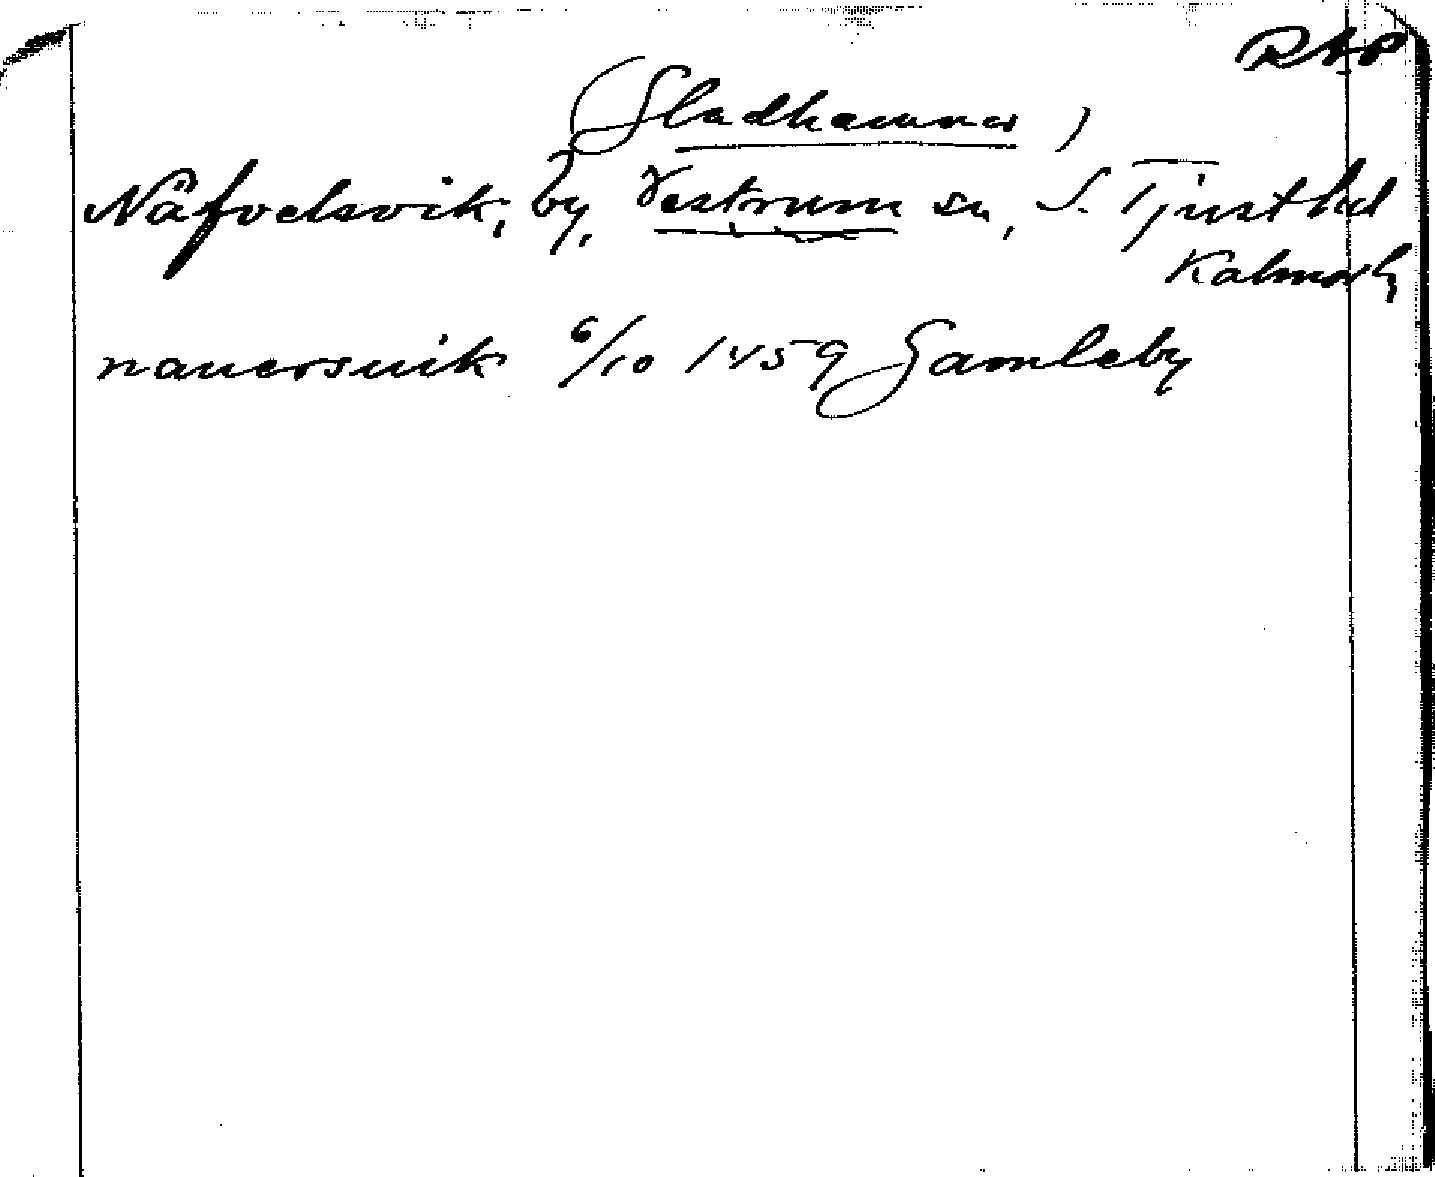 RAP
(Gladhammar)
Nåfvelsvik, by, Vestrum sn, S. Tjust hd
Kalmar l.
nauersuik 6/10 1459 Gamleby